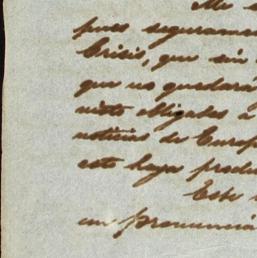 Me s
pues seguramen
Crisis, que sin
que no quedará
visto obligados a
noticias de Europ
esto haya produ
Este
un pronunciá